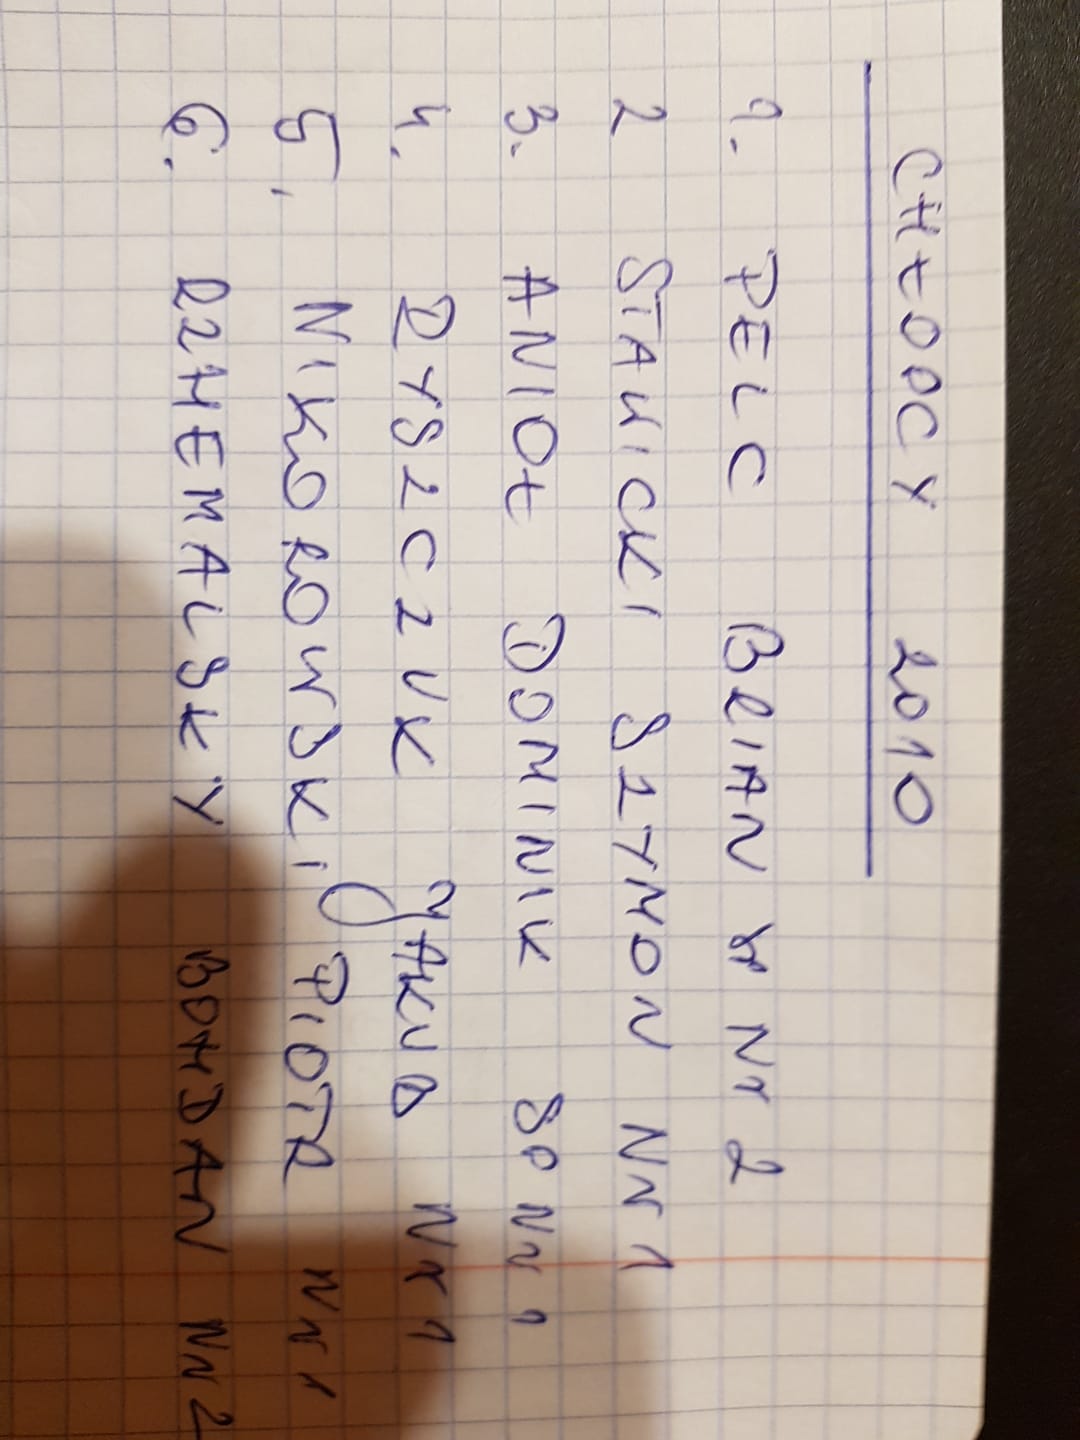 CHŁOPCY 2010
1. PELC BRIAN Nr 2
2 STAWICKI SZYMON Nr 1
3. ANIOŁ DOMINIK SP Nr 1
4. RYSZCZUK JAKUB Nr 1
5. NIKOROWSKI PIOTR Nr 1
6. RZHEMALSKY BOHDAN Nr 2